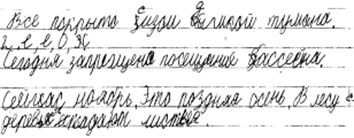 Всё покрыто сизой дымкой тумана.
2, е, е, О, Ж
Сегодня запрещено посещение бассейна.
Сейчас ноябрь. Это поздняя осень. В лесу с
деревьев опадают листья.